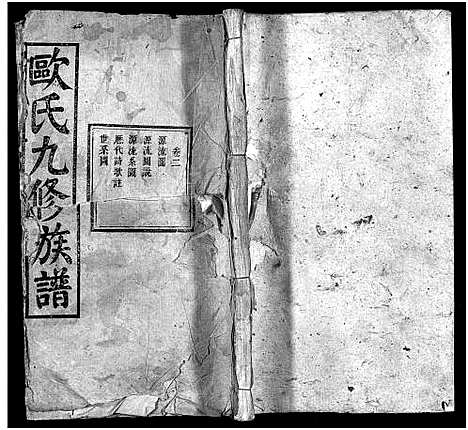 歐氏九修族譜
卷二
源流圖
源流圖說
源流系圖
歷代詩歌註
世系圖